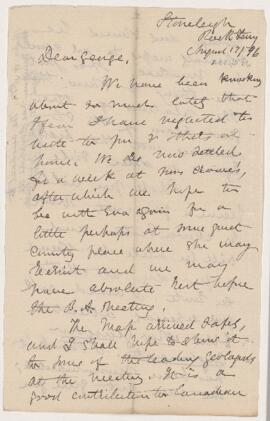 Stoneleigh
Rock Ferry
August 17/96
Dear George,
We have been knocking
about so much lately that
I fear I have neglected to
write to you & that at
home. We are now settled
for a week at Mrs
after which we hope to
be with Eva again for a
little perhaps at some quiet
country place where she may
and we may
have absolute rest before
the B. A. Meeting.
The Map arrived safely,
and I shall hope to show it
to some of the leading geologists
at the Meeting. It is a
good contribution to Canadian